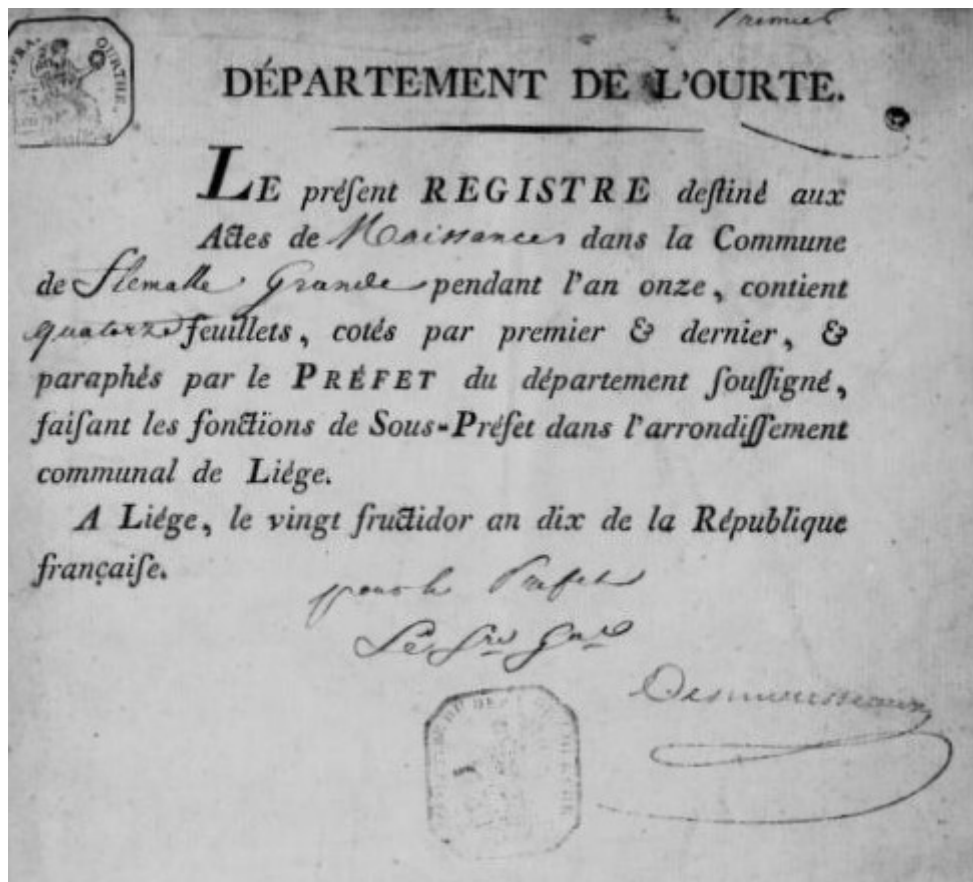 Premier
RÉP. FRA.
OURTHE.
DÉPARTEMENT DE L'OURTE.
LE préſent REGISTRE deſtiné aux
Actes de Naissances dans la Commune
de Flemalle Grande pendant l'an onze, contient
quatorze feuillets, cotés par premier & dernier, &
paraphés par le PRÉFET du département ſouſſigné,
faiſant les fonctions de Sous-Préfet dans l'arrondiſſement
communal de Liége.
A Liége, le vingt fructidor an dix de la République
françaiſe.
pour le Prefet
Le Sre Gnal
Desmousseaux